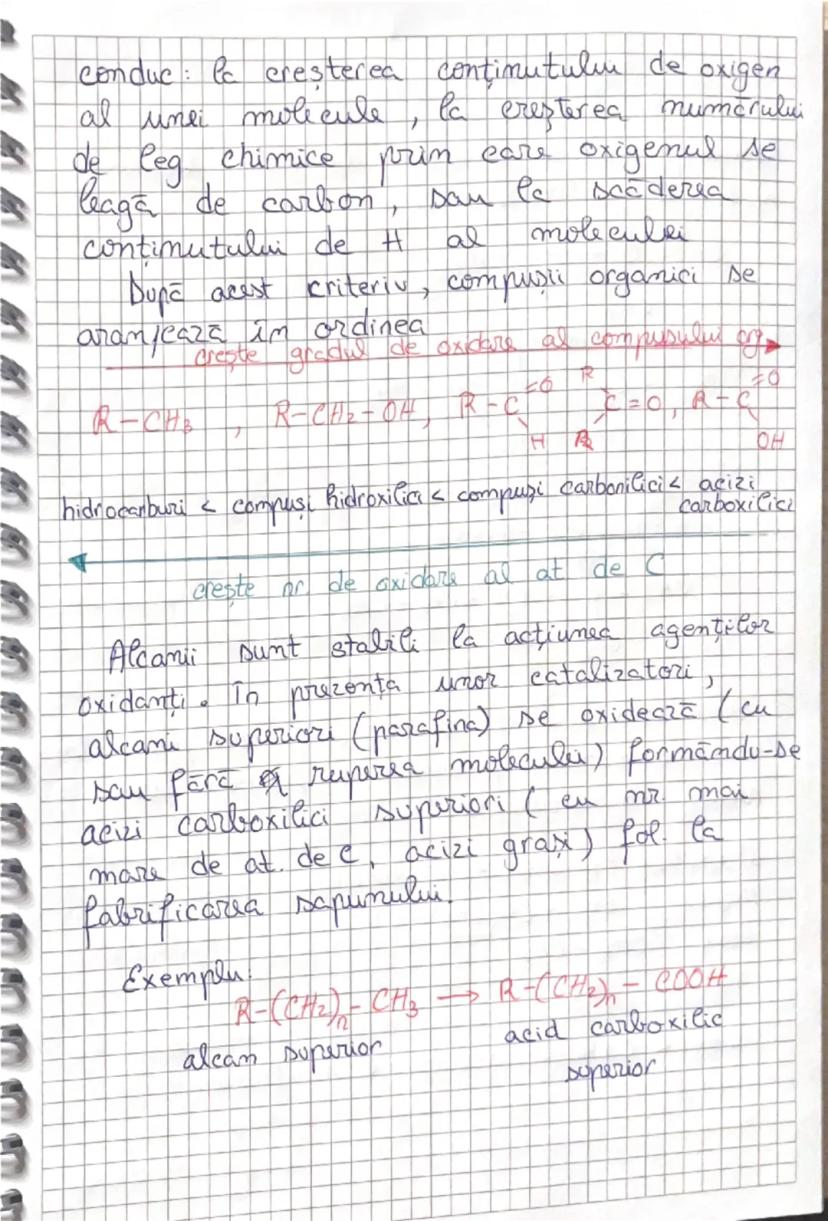 conduc: la creșterea conținutului de oxigen
al unei molecule, la creșterea numărului
de leg chimice prin care oxigenul se
leagă de carbon, sau la scăderea
conținutului de H al moleculei
După acest criteriu, compușii organici se
aranjează în ordinea
crește gradul de oxidare al compusului org
R-CH3, R-CH2-OH, R-C=O H R R C=O, R-C=O OH
hidrocarburi < compuși hidroxilici < compuși carbonilici < acizi
carboxilici
crește nr. de oxidare al at de C
Alcanii sunt stabili la acțiunea agenților
oxidanți. În prezența unor catalizatori,
alcani superiori (parafina) se oxidează (cu
sau fără ruperea moleculei) formându-se
acizi carboxilici superiori (cu nr. mai
mare de at. de C, acizi grași) fol. la
fabrificarea sapunului.
Exemplu:
R-(CH2)n-CH3 → R-(CH2)n-COOH
alcan superior acid carboxilic
superior